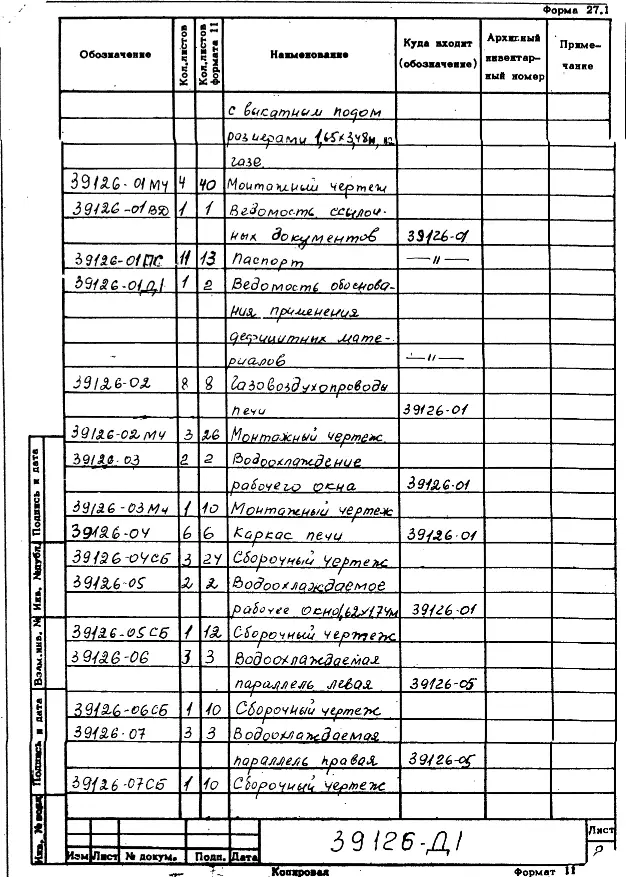 Форма 27.1
Обозначение Кол.листов Кол.листов формата 11 Наименование Куда входит (обозначение) Архивный инвентарный номер Примечание
с выкатным подом
размерами 1,65×3,48м, на
газе.
39126-01МЧ 4 40 Монтажный чертеж
39126-01ВД 1 1 Ведомость ссылоч-
ных документов 39126-01
39126-01ПС 11 13 Паспорт —〃—
39126-01Д1 1 2 Ведомость обоснова-
ния применения
дефицитных мате-
риалов —〃—
39126-02 8 8 Газовоздухопроводы
печи 39126-01
39126-02МЧ 3 26 Монтажный чертеж
39126-03 2 2 Водоохлаждение
рабочего окна 39126-01
39126-03МЧ 1 10 Монтажный чертеж
39126-04 6 6 Каркас печи 39126-01
39126-04СБ 3 24 Сборочный чертеж
39126-05 2 2 Водоохлаждаемое
рабочее окно 1,62×1,74м 39126-01
39126-05СБ 1 12 Сборочный чертеж
39126-06 3 3 Водоохлаждаемая
параллель левая 39126-05
39126-06СБ 1 10 Сборочный чертеж
39126-07 3 3 Водоохлаждаемая
параллель правая 39126-05
39126-07СБ 1 10 Сборочный чертеж
Подпись и дата
Инв. №дубл.
Взам.инв. №
Подпись и дата
Инв. №подл
Изм Лист № докум. Подп. Дата
39126-Д1
Лист
Копировал Формат 11